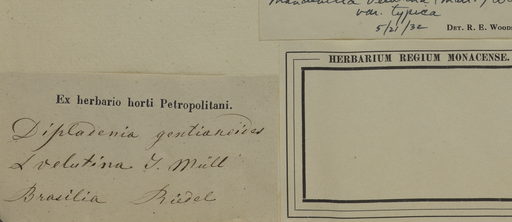 Mandevilla velutina (Mart.)
var. typica
5/21/32
DET. R. E. Woods
HERBARIUM REGIUM MONACENSE.
Ex herbario horti Petropolitani.
Dipladenia gentianoides
L velutina J. Müll
Brasilia Riedel